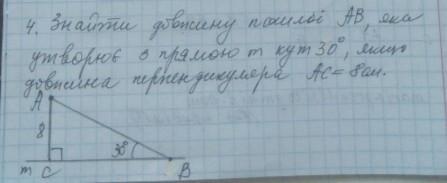 4. Знайти довжину похилої АВ, яка
утворює з прямою m кут 30°, якщо
довжина перпендикуляра АС = 8 см.
A
8
30°
m C B